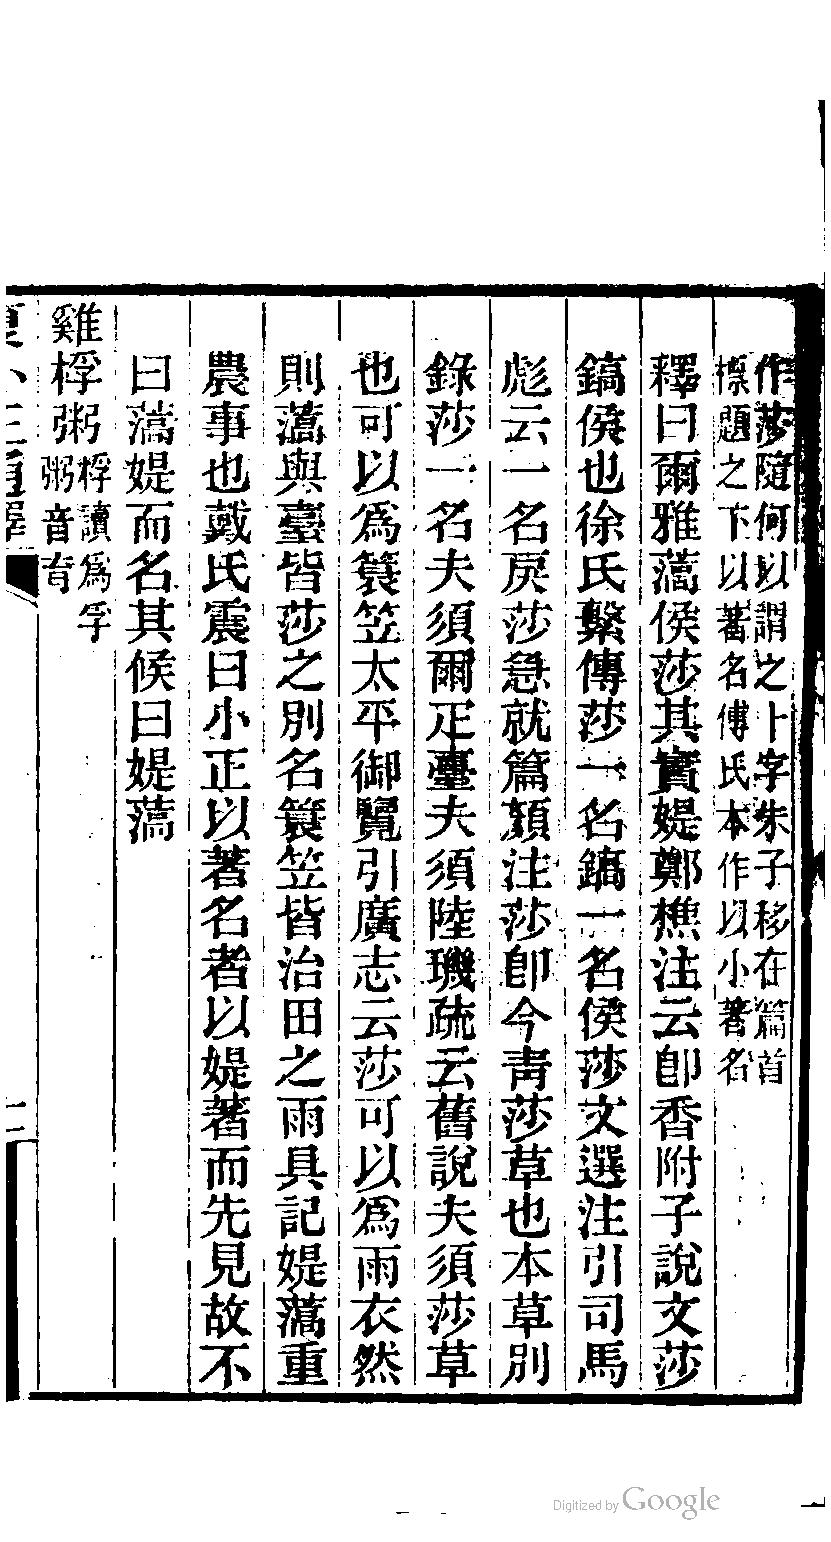 作莎隨何以謂之十字朱子移在篇首
標題之下以著名傅氏本作以小著名
釋曰爾雅薃侯莎其實媞鄭樵注云卽香附子說文莎
鎬侯也徐氏繫傳莎一名鎬一名侯莎文選注引司馬
彪云一名戾莎急就篇顏注莎卽今靑莎草也本草別
錄莎一名夫須爾疋薹夫須陸璣疏云舊說夫須莎草
也可以爲簑笠太平御覽引廣志云莎可以爲雨衣然
則薃與臺皆莎之別名簑笠皆治田之雨具記媞薃重
農事也戴氏震曰小正以著名者以媞著而先見故不
曰薃媞而名其候曰媞薃
雞桴粥
桴讀爲孚
粥音育
夏小正通釋
二
Digitized by Google